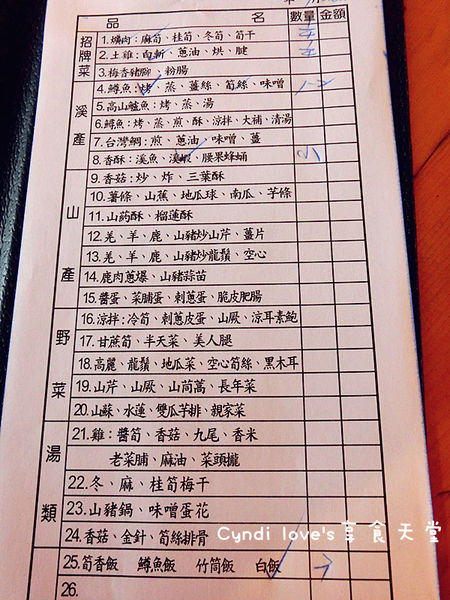 年 月
品 名 數量 金額
招牌菜
1.爌肉:麻筍、桂筍、冬筍、筍干
2.土雞:白斬、蔥油、烘、腱
3.梅香豬腳、粉腸
4.鱒魚:烤、蒸、薑絲、筍絲、味噌
溪產
5.高山鱸魚:烤、蒸、湯
6.鱘魚:烤、蒸、煎、酥、涼拌、大補、清湯
7.台灣鯛:煎、蔥油、味噌、薑
8.香酥:溪魚、溪蝦、腰果蜂蛹 小
山產
9.香菇:炒、炸、三葉酥
10.薯條、山蕉、地瓜球、南瓜、芋條
11.山葯酥、榴蓮酥
12.羌、羊、鹿、山豬炒山芹、薑片
13.羌、羊、鹿、山豬炒龍鬚、空心
14.鹿肉蔥爆、山豬蒜苗
15.醬蛋、菜脯蛋、刺蔥蛋、脆皮肥腸
野菜
16.涼拌:冷筍、刺蔥皮蛋、山厥、涼耳素鮑
17.甘蔗筍、半天菜、美人腿
18.高麗、龍鬚、地瓜菜、空心筍絲、黑木耳
19.山芹、山厥、山茼萵、長年菜
20.山蘇、水蓮、雙瓜芋排、親家菜
湯類
21.雞:醬筍、香菇、九尾、香米
老菜脯、麻油、菜頭攏
22.冬、麻、桂筍梅干
23.山豬鍋、味噌蛋花
24.香菇、金針、筍絲排骨
25.筍香飯 鱒魚飯 竹筒飯 白飯
26.
Cyndi love's享食天堂